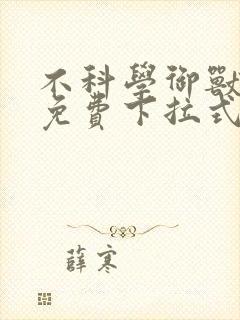 不科學御獸
免費下拉式
薛寒